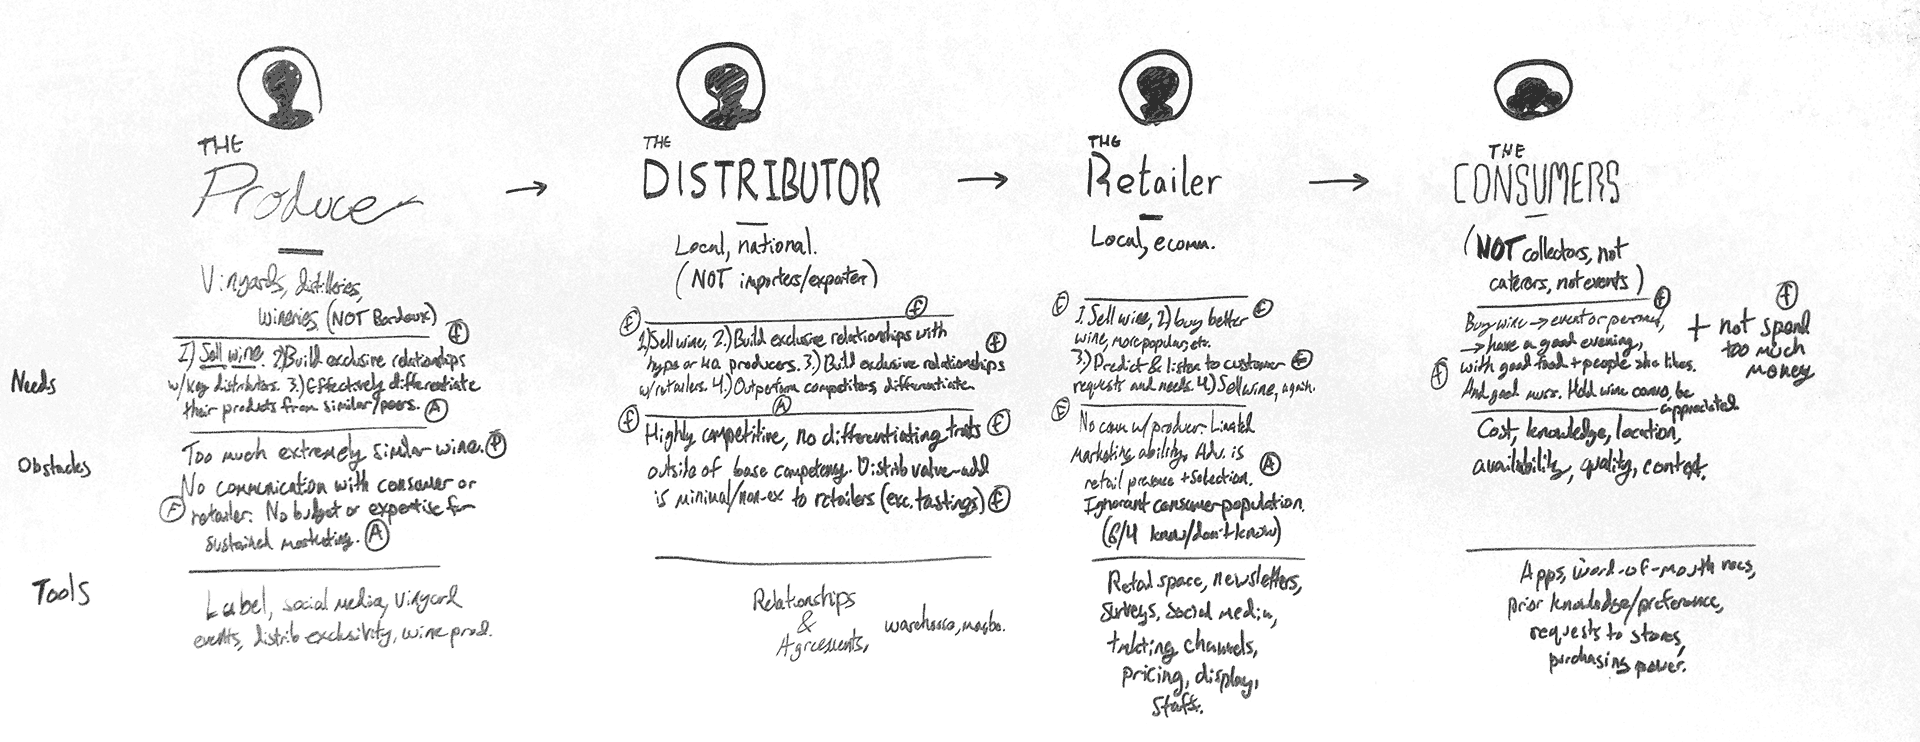 THE
Producer
Vinyards, distilleries,
wineries, (NOT Bordeaux)
Needs
1) Sell wine. 2) Build exclusive relationships
w/key distributors. 3.) Effectively differentiate
their products from similar/peers. A
f
Obstacles
Too much extremely similar wine. P
No communication with consumer or
F retailer. No budget or expertise for
sustained marketing. A
Tools
Label, social media, Vinyard
events, distrib exclusivity, wine prod.
→
THE
DISTRIBUTOR
Local, national.
(NOT importers/exporter)
f f
1.) Sell wine, 2.) Build exclusive relationships with f
hype or producers. 3.) Build exclusive relationships
w/retailers. 4.) Outperform competitors, differentiate.
A
f Highly competitive, no differentiating traits f
outside of base competency. Distrib value-add
is minimal/non-ex to retailers (exc. tastings) f
Relationships
&
Agreements,
warehouse,
→
THE
Retailer
Local, ecomm.
F f
1. Sell wine, 2) buy better
wine, more popular, etc.
3.) Predict & listen to customer
requests and needs. 4.) Sell wine, again.
F No comm w/producer. Limited
marketing ability. Adv. is
retail presence + selection. A
Ignorant consumer population.
(6/4 know/don't know)
Retail space, newsletters,
surveys, social media,
channels,
pricing, display,
staff.
→
THE
CONSUMERS
(NOT collectors, not
caterers, not events)
f
Buy wine → event or personal,
→ have a good evening,
with good food + people she likes.
f And good music. Hold wine convo, be
appreciated.
f
+ not spend
too much
money
Cost, knowledge, location,
availability, quality, context.
Apps, word-of-mouth recs,
prior knowledge/preference,
requests to stores,
purchasing power.